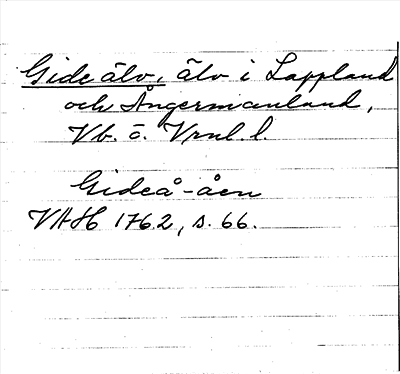 Gide älv, älv i Lappland
och Ångermanland,
Vb. o. Vrnl. l.
Gideå-åen
VAH 1762, s. 66.